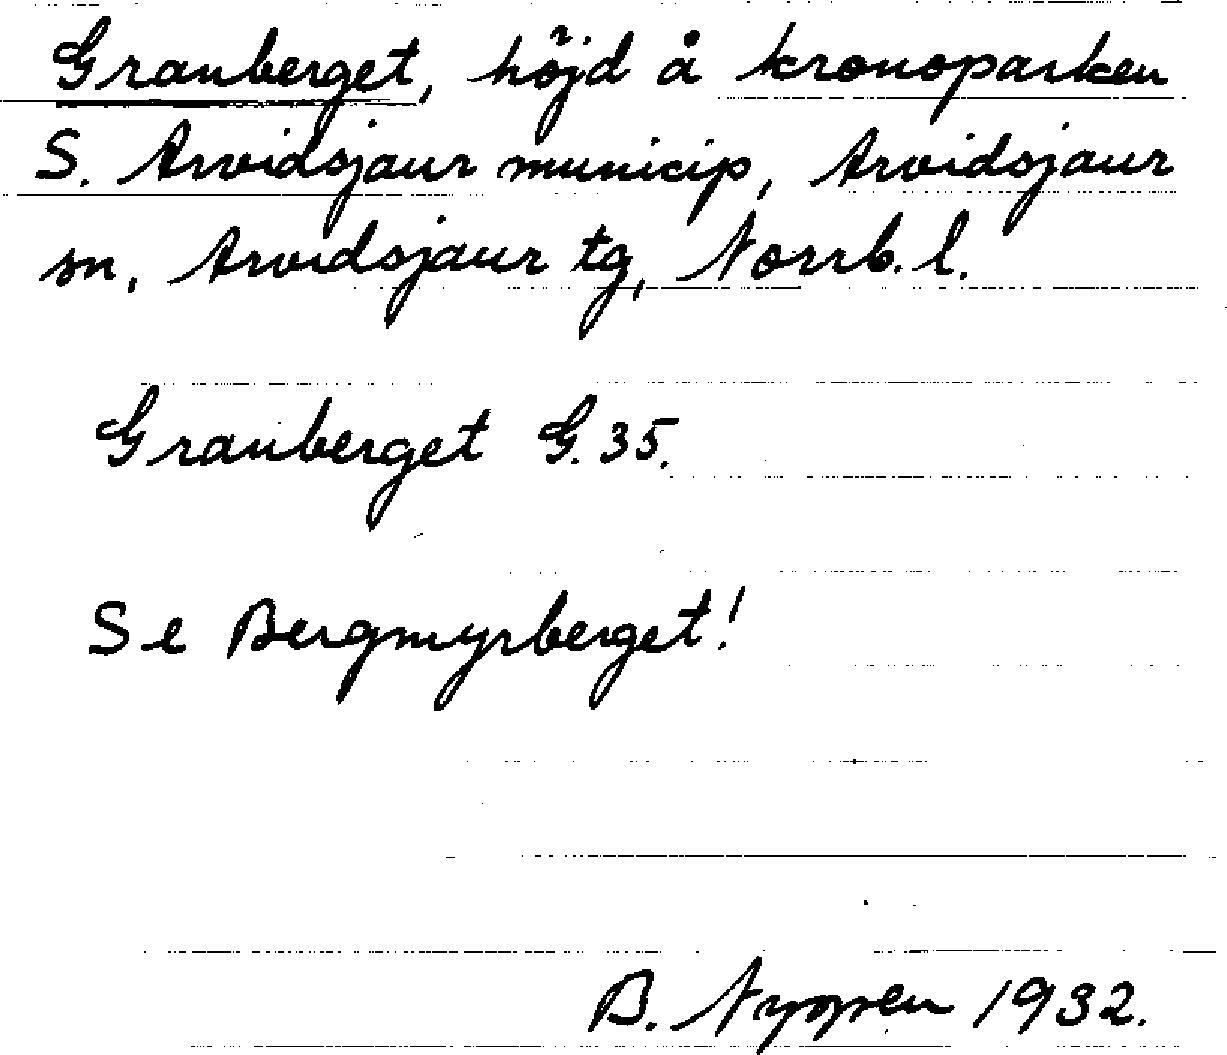 Granberget, höjd å kronoparken
S. Arvidsjaur municip, Arvidsjaur
sn, Arvidsjaur tg, Norrb. l.
Granberget G. 35.
Se Bergmyrberget!
B. 1932.